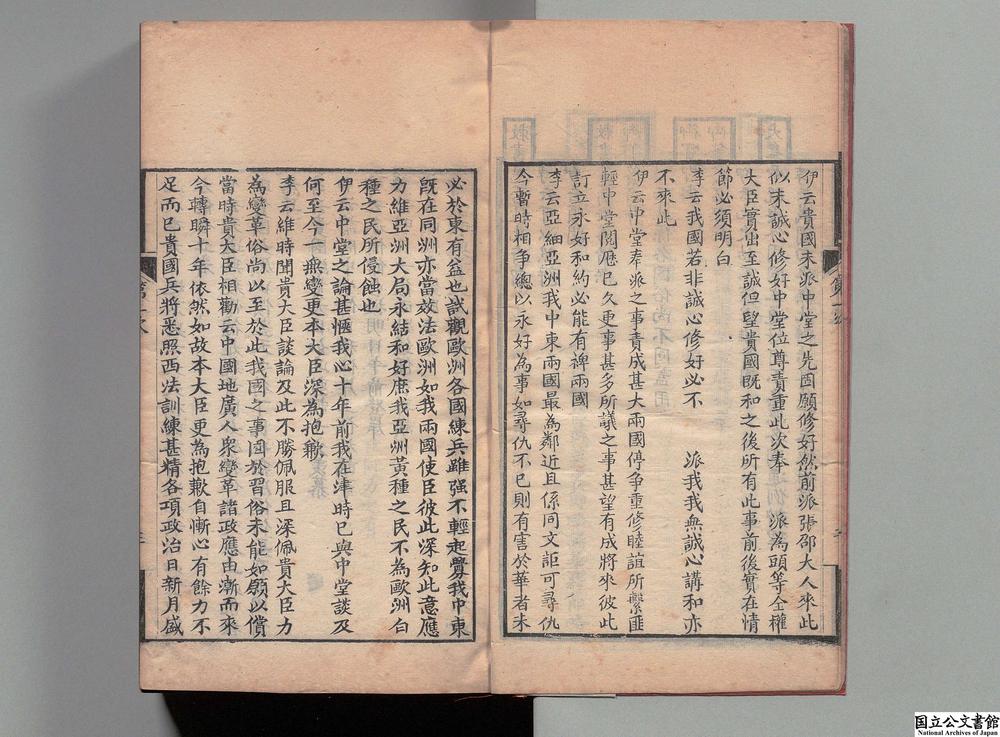 伊云貴國未派中堂之先固願修好然前派張邵大人來此
似未誠心修好中堂位尊責重此次奉　派為頭等全權
大臣實出至誠但望貴國既和之後所有此事前後實在情
節必須明白
李云我國若非誠心修好必不　派我我無誠心講和亦
不來此
伊云中堂奉派之事責成甚大兩國停争重修睦誼所繫匪
輕中堂閱歷已久更事甚多所議之事甚望有成將來彼此
訂立永好和約必能有裨兩國
李云亞細亞洲我中東兩國最為鄰近且係同文詎可尋仇
今暫時相争總以永好為事如尋仇不已則有害於華者未
必於東有益也試觀歐洲各國練兵雖强不輕起釁我中東
既在同洲亦當效法歐洲如我兩國使臣彼此深知此意應
力維亞洲大局永結和好庶我亞洲黃種之民不為歐洲白
種之民所侵蝕也
伊云中堂之論甚愜我心十年前我在津時已與中堂談及
何至今一無變更本大臣深為抱歉
李云維時聞貴大臣談論及此不勝佩服且深佩貴大臣力
為變革俗尚以至於此我國之事囿於習俗未能如願以償
當時貴大臣相勸云中國地廣人衆變革諸政應由漸而來
今轉瞬十年依然如故本大臣更為抱歉自慚心有餘力不
足而已貴國兵將悉照西法訓練甚精各項政治日新月盛
国立公文書館
National Archives of Japan